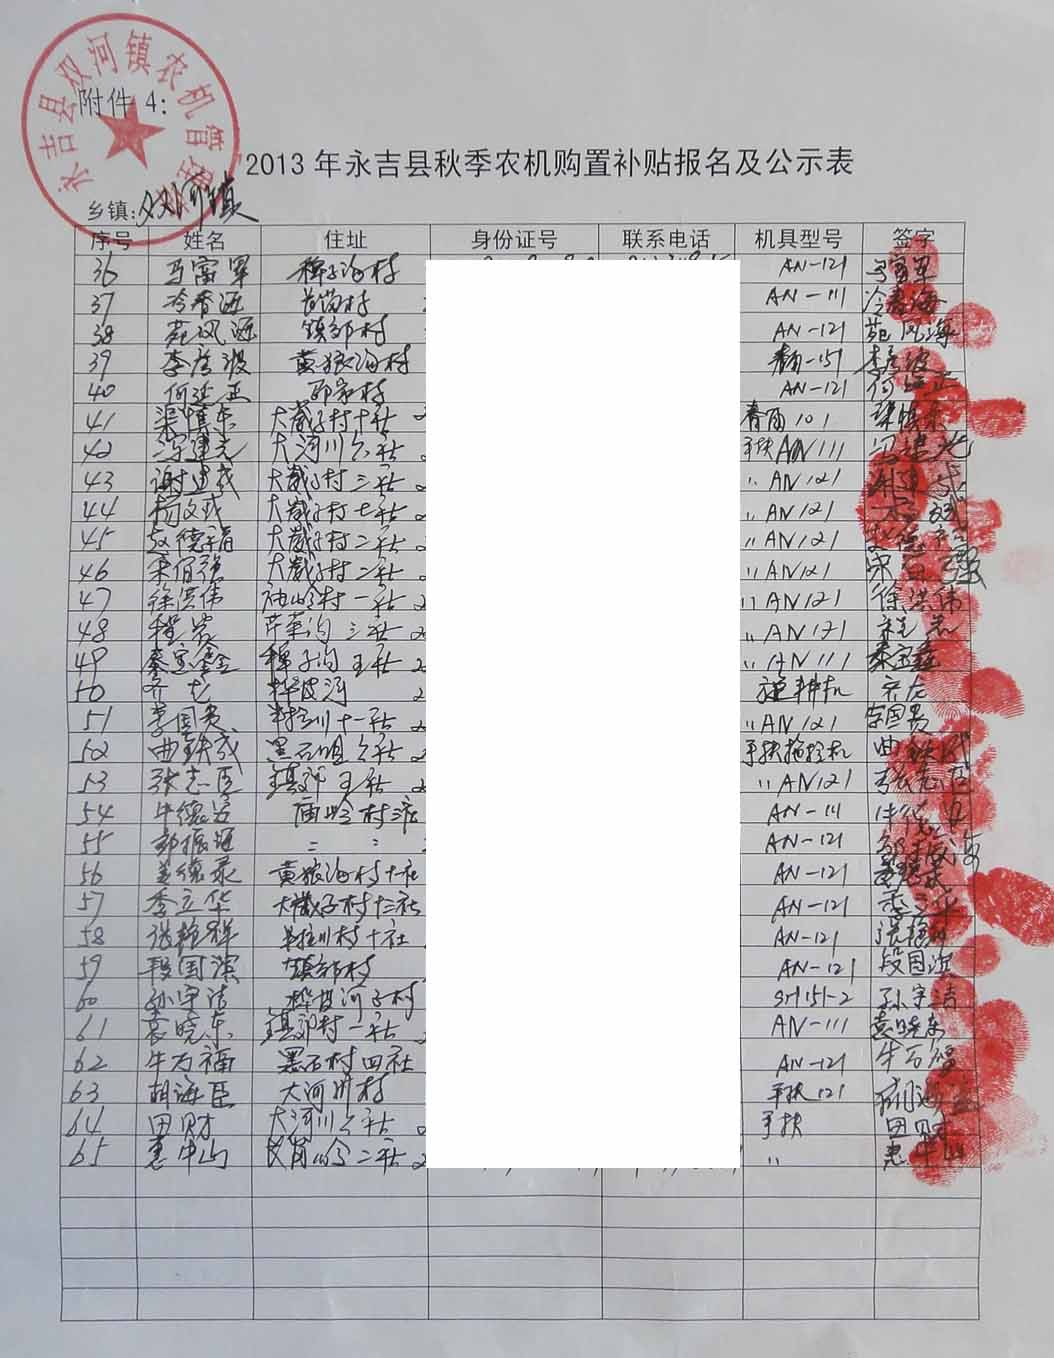 永吉县双河镇农机管理
附件 4：
2013 年永吉县秋季农机购置补贴报名及公示表
乡镇：双河镇
序号 姓名 住址 身份证号 联系电话 机具型号 签字
36 马富军 稗子沟村 AN-121 马富军
37 冷春海 AN-111 冷春海
38 苑凤海 镇郊村 AN-121 苑凤海
39 李彦波 黄狼沟村 -151 李彦波
40 何延正 邵家村 AN-121 何延正
41 梁慎东 大崴子村十社 101 梁慎东
42 冯建光 大河川 社 手扶AN111 冯建光
43 谢建成 大崴子村三社 〃AN121 谢建成
44 杨文成 大崴子村七社 〃AN121
45 赵德福 大崴子村二社 〃AN121 赵德福
46 宋佰强 大崴子村二社 〃AN121 宋佰强
47 徐洪伟 村一社 〃AN121 徐洪伟
48 程岩 芹菜沟三社 〃AN121 程岩
49 秦宝鑫 稗子沟五社 〃AN111 秦宝鑫
50 齐龙 桦皮河 旋耕机 齐龙
51 李国贵 十一社 〃AN121 李国贵
52 曲铁成 黑石 社 手扶拖拉机 曲铁成
53 张志臣 镇郊五社 〃AN121 张志臣
54 牛德发 庙岭村 AN-111
55 郭振海 〃 〃 AN-121
56 姜德录 黄狼沟村十社 AN-121
57 季立华 大崴子村十三社 AN-121 季立华
58 张艳辉 村十社 AN-121 张艳辉
59 段国滨 镇郊村 AN-121 段国滨
60 孙宇洁 桦皮河子村 SH151-2 孙宇洁
61 袁晓东 镇郊村一社 AN-111 袁晓东
62 牛万福 黑石村四社 AN-121 牛万福
63 胡海臣 大河川村 手扶121 胡海臣
64 田财 大河川 社 手扶 田财
65 惠中山 二社 〃 惠中山